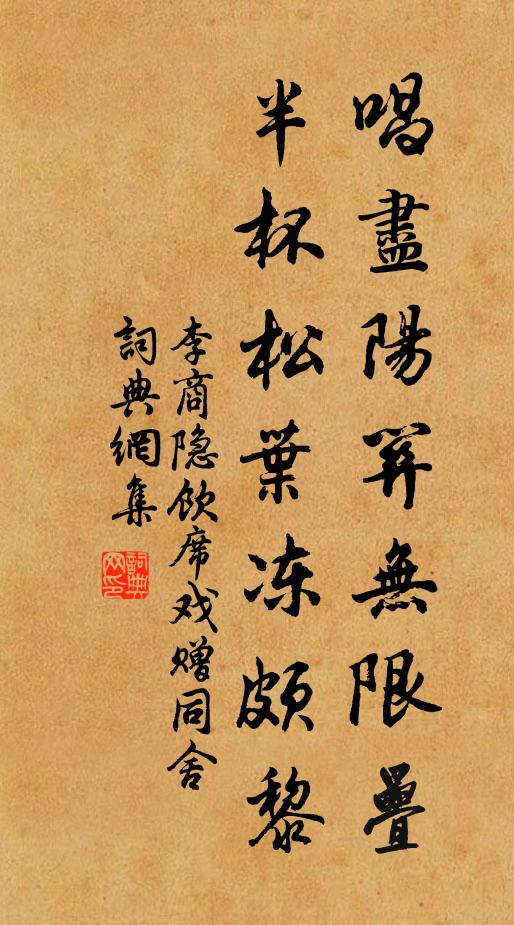 唱盡陽關無限疊
半杯松葉冻頗黎
李商隐飲席戏赠同舍
詞典網集
詞典
网印